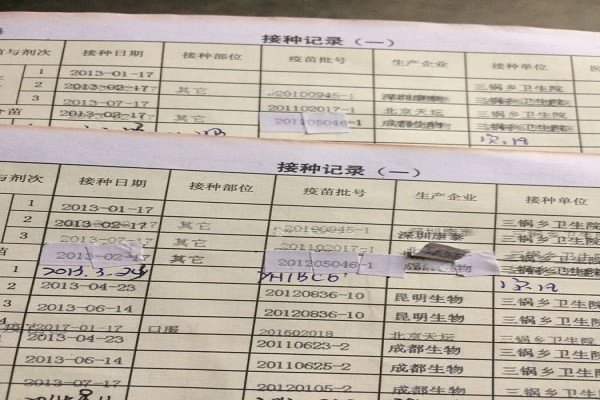 接种记录（一）
苗与剂次 接种日期 接种部位 疫苗批号 生产企业 接种单位
1 2013-01-17 三锅乡卫生院
2 2013-02-17 其它 20100945-1 深圳康泰 三锅乡卫生院
3 2013-07-17 201102017-1 北京天坛 三锅乡卫生院
苗 2013-02-17 其它 201205046-1 成都生物 三锅乡卫生院
接种记录（一）
与剂次 接种日期 接种部位 疫苗批号 生产企业 接种单位
1 2013-01-17 三锅乡卫生院
2 2013-02-17 其它 20100945-1 深圳康泰 三锅乡卫生院
3 2013-07-17 其它 201102017-1 三锅乡卫生院
苗 2013-02-17 其它 201205046-1 成都生物 三锅乡卫生院
1 2013.3.24
2 2013-04-23 20120836-10 昆明生物 三锅乡卫生院
3 2013-06-14 20120836-10 昆明生物 三锅乡卫生院
2017-01-17 口服 201602018 北京天坛 三锅乡卫生院
1 2013-04-23 20110623-2 成都生物 三锅乡卫生院
2 2013-06-14 20110625-2 成都生物 三锅乡卫生院
3 2013-07-17 20120105-2 成都生物 三锅乡卫生院